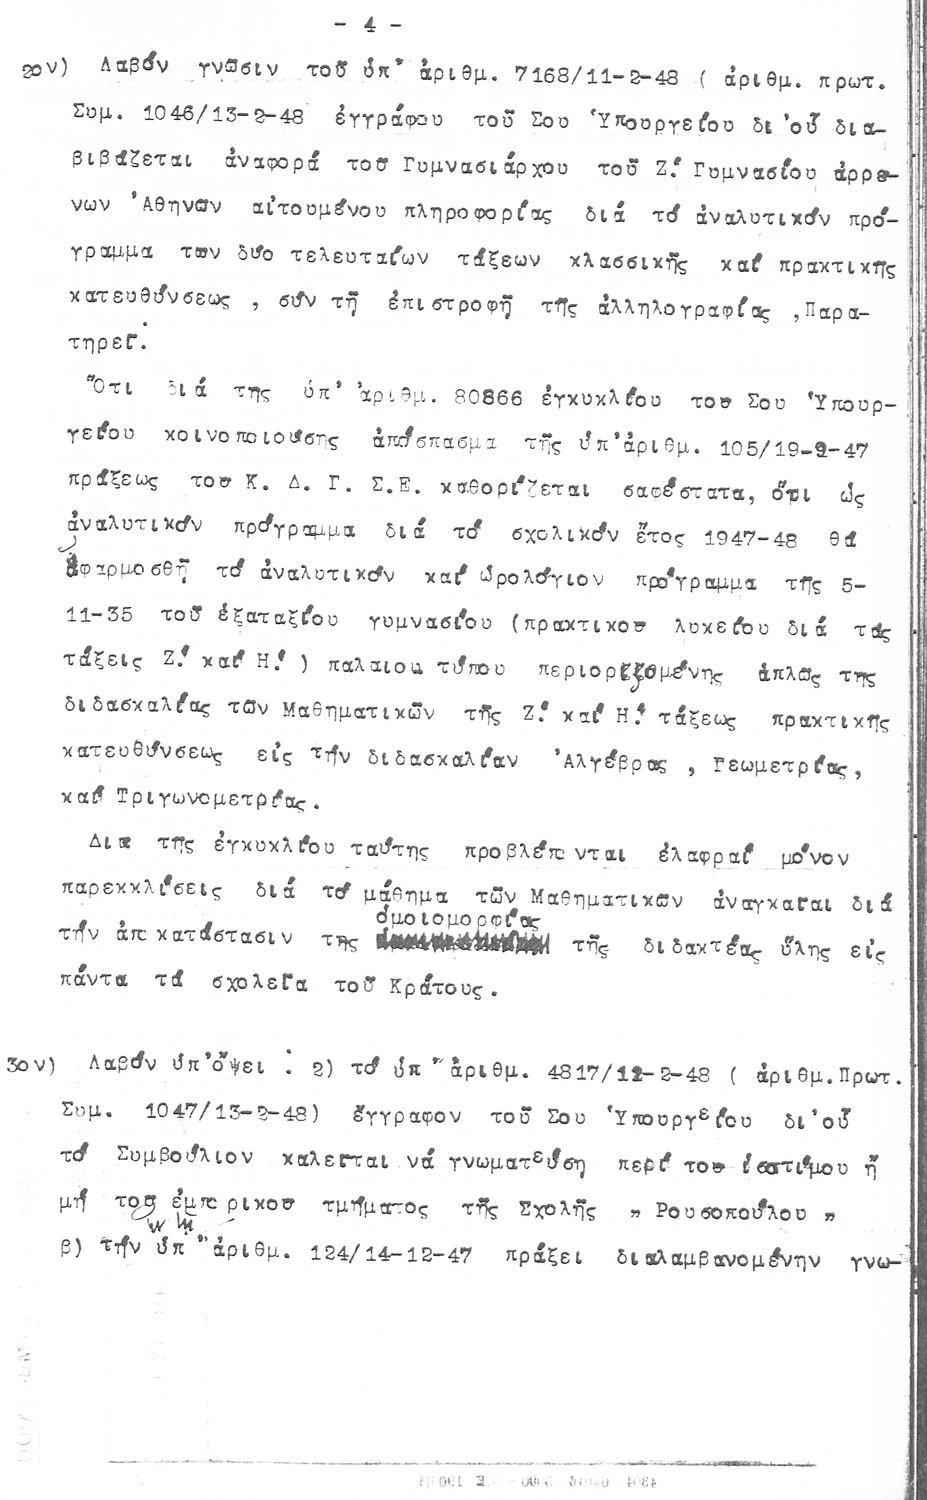 - 4 -
2ον) Λαβόν γνῶσιν τοῦ ὑπ' ἀριθμ. 7168/11-2-48 ( ἀριθμ. πρωτ.
Συμ. 1046/13-2-48 ἐγγράφου τοῦ Σου Ὑπουργείου δι'οὗ δια-
βιβάζεται ἀναφορά του Γυμνασιάρχου τοῦ Ζ! Γυμνασίου ἀρρε-
νων Ἀθηνῶν αἰτουμένου πληροφορίας διά τό ἀναλυτικόν πρό-
γραμμα των δύο τελευταίων τάξεων κλασσικῆς καί πρακτικῆς
κατευθύνσεως , σύν τῇ ἐπιστροφῇ τῆς ἀλληλογραφίας ,Παρα-
τηρεῖ:
Ὅτι διά της ὑπ' ἀριθμ. 80866 ἐγκυκλίου του Σου Ὑπουρ-
γείου κοινοποιούσης ἀπόσπασμα τῆς ὑπ'ἀριθμ. 105/19-9-47
πράξεως του Κ. Δ. Γ. Σ.Ε. καθορίζεται σαφέστατα, ὅτι ὡς
ἀναλυτικόν πρόγραμμα διά τό σχολικόν ἔτος 1947-48 θά
ἐφαρμοσθῇ τό ἀναλυτικόν καί ὡρολόγιον πρόγραμμα τῆς 5-
11-35 τοῦ ἑξαταξίου γυμνασίου (πρακτικου λυκείου διά τάς
τάξεις Ζ! καί Η! ) παλαιου τύπου περιοριζομένης ἁπλῶς της
διδασκαλίας τῶν Μαθηματικῶν τῆς Ζ! καί Η! τάξεως πρακτικῆς
κατευθύνσεως εἰς τήν διδασκαλίαν Ἀλγέβρας , Γεωμετρίας,
καί Τριγωνομετρίας.
Διά τῆς ἐγκυκλίου ταύτης προβλέπονται ἐλαφραί μόνον
παρεκκλίσεις διά τό μάθημα τῶν Μαθηματικῶν ἀναγκαῖαι διά
ὁμοιομορφίας
τήν ἀποκατάστασιν της τῆς διδακτέας ὕλης εἰς
πάντα τά σχολεῖα τοῦ Κράτους.
3ον) Λαβόν ὑπ'ὄψει : 2) τό ὑπ' ἀριθμ. 4817/12-2-48 ( ἀριθμ.Πρωτ.
Συμ. 1047/13-2-48) ἔγγραφον τοῦ Σου Ὑπουργείου δι'οὗ
τό Συμβούλιον καλεῖται νά γνωματεύση περί του ἰσοτίμου ἤ
μή του ἐμπορικου τμήματος τῆς Σχολῆς „ Ρουσοπούλου „
β) τήν ὑπ' ἀριθμ. 124/14-12-47 πράξει διαλαμβανομένην γνω-